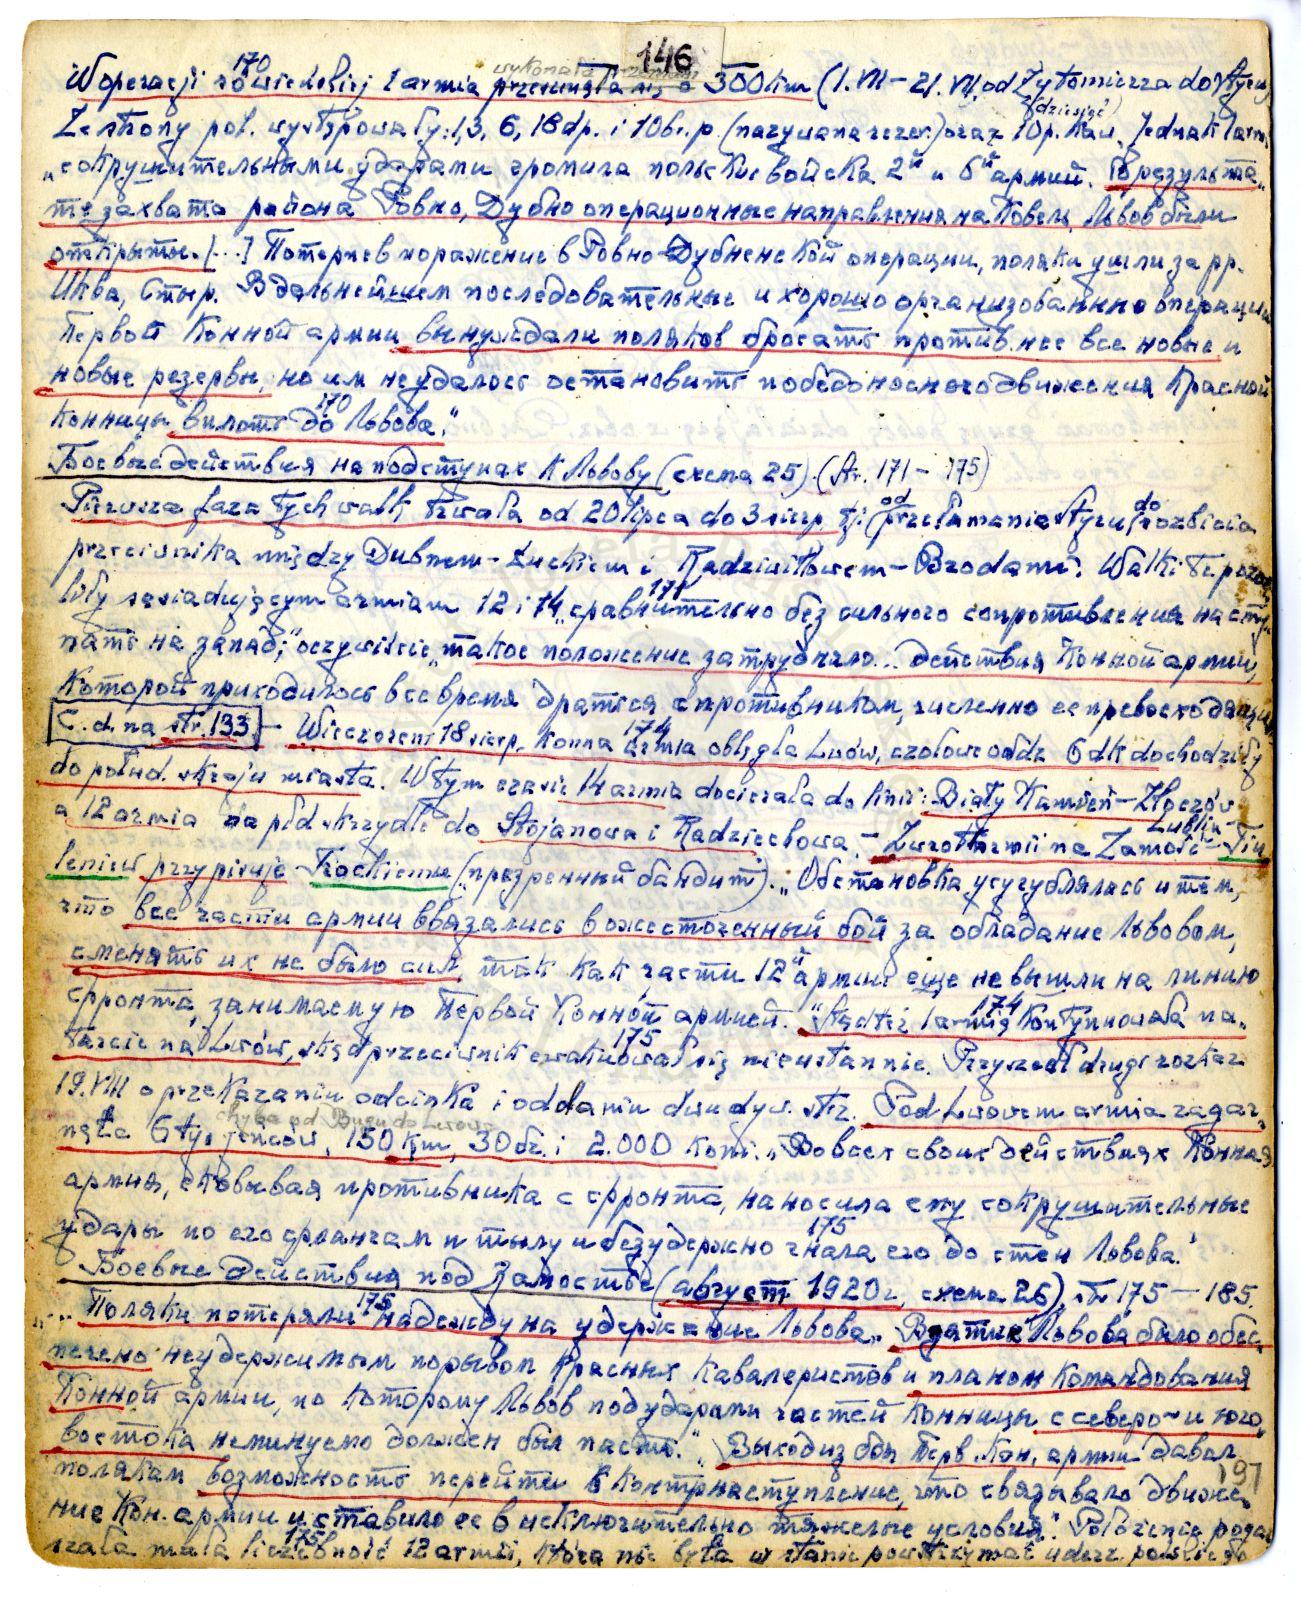 146
170
wykonała przemarsz
W operacji rówieńskiej 1 armia przesunęła się o 300 km (1.VII – 21.VII, od Żytomierza do Styru)
(dziesięć)
Ze strony pol. występowały: 1, 3, 6, 18 dp. i 10 br. p. (nazywana rezer.) oraz 10 p. kaw. Jednak 1 arm.
„сокрушительными ударами громила польские войска 2й и 6й армий. В результа-
те захвата района Ровно, Дубно операционные направления на Ковель, Львов были
открыты. [...] Потерпев поражение в Ровно-Дубненской операции, поляки ушли за рр.
Иква, Стырь. В дальнейшем последовательные и хорошо организованные операции
Первой Конной армии вынуждали поляков бросать против нее все новые и
новые резервы, но им не удалось остановить победоносного движения Красной
170
конницы вплоть до Львова."
Боевые действия на подступах к Львову (схема 25). (str. 171 – 175)
od do
Pierwsza faza tych walk trwała od 20 lipca do 3 sierp, tj. przełamania Styru rozbicia
przeciwnika między Dubnem – Łuckiem i Radziwiłłowem – Brodami. Walki te pozwo-
171
liły sąsiadującym armiom 12 i 14 „сравнительно без сильного сопротивления насту-
пать на запад"; oczywiście „такое положение затрудняло... действия Конной армии,
которой приходилось все время драться с противником, численно ее превосходящим
174
C. d. na str. 133. – Wieczorem 18 sierp. konna armia obległa Lwów, czołowe oddz. 6 dk dochodziły
do połud. skraju miasta. W tym czasie 14 armia docierała do linii: Biały Kamień – Złoczów
a 12 armia na płd skrzydle do Stojanowa i Radziechowa. – Zwrot 1 armii na Zamość – Lublin – Tiu
leniew przypisuje Trockiemu („презренный бандит"). „Обстановка усугублялась и тем,
что все части армии ввязались в ожесточенный бой за обладание Львовом,
сменять их не было сил, так как части 12й армии еще не вышли на линию
174
фронта, занимаемую Первой Конной армией." Stąd też 1 armia kontynuowała na-
175
tarcie na Lwów, skąd przeciwnik ewakuował się nieustannie. Przyszedł drugi rozkaz
19.VIII o przekazaniu odcinka i oddaniu dwu dyw. strz. Pod Lwowem armia zagar-
chyba od Bugu do Lwowa
nęła 6 tys. jeńców, 150 km, 30 dz. i 2.000 koni. „Во всех своих действиях Конная
армия, сковывая противника с фронта, наносила ему сокрушительные
175
удары по его флангам и тылу и безудержно гнала его до стен Львова."
Боевые действия под Замостье (август 1920 г., схема 26). str 175 – 185.
175
„Поляки потеряли надежду на удержание Львова. Взятие Львова было обес-
печено неудержимым порывом красных кавалеристов и планом командования
Конной армии, по которому Львов под ударами частей конницы с северо- и юго-
востока неминуемо должен был пасть." „Выход из боя Перв. Кон. армии давал
полякам возможность перейти в контрнаступление, что связывало движе-
197
ние Кон. армии и ставило ее в исключительно тяжелые условия." Położenie pogar
175
szała mała liczebność 12 armii, która nie była w stanie powstrzymać uderz. polskiego